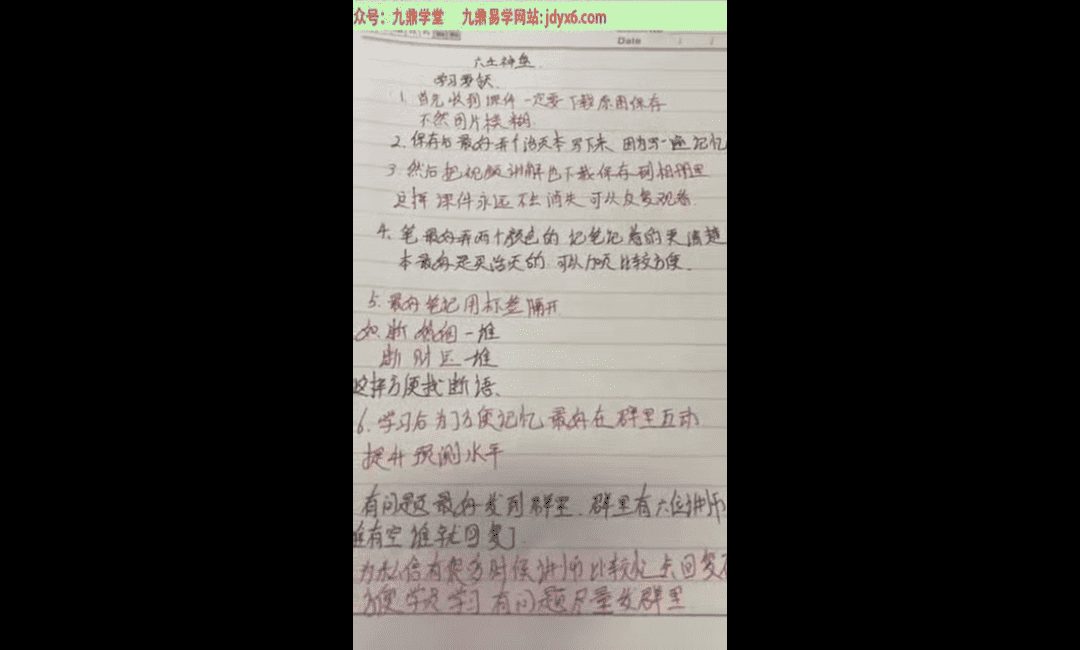 众号：九鼎学堂 九鼎易学网站:jdyx6.com
Date
六壬神盘
学习要诀
1. 首先收到课件一定要下载原图保存
不然图片模糊
2. 保存后最好弄个活页本写下来 因为写一遍记忆
3 然后把视频讲解也下载保存到相册里
这样课件永远不会消失可以反复观看.
4. 笔最好弄两个颜色的 记笔记看的更清楚
本最好是买活页的 可以加页比较方便.
5. 最好笔记用标签隔开
如 断婚姻一堆
断财运一堆
这样方便找断语.
6. 学习后为了方便记忆最好在群里互动
提升预测水平
有问题最好发到群里. 群里有六位讲师
谁有空谁就回复了
为私信有些时候讲师比较忙 回复
方便学员学习 有问题尽量发群里